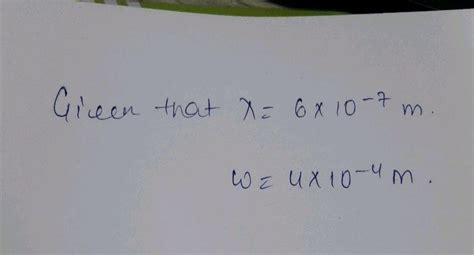 Given that λ = 6×10⁻⁷ m.
ω = 4×10⁻⁴ m.